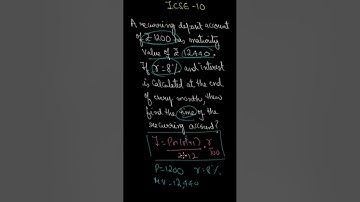 ICSE-10
A recurring deposit account
of ₹1200 has maturity
Value of ₹12,440.
If r=8% and interest
is calculated at the end
of every month, then
find the time of the
recurring account?
I = Pn(n+1)/2×12 . r/100
P=1200 r=8%
MV=12,440